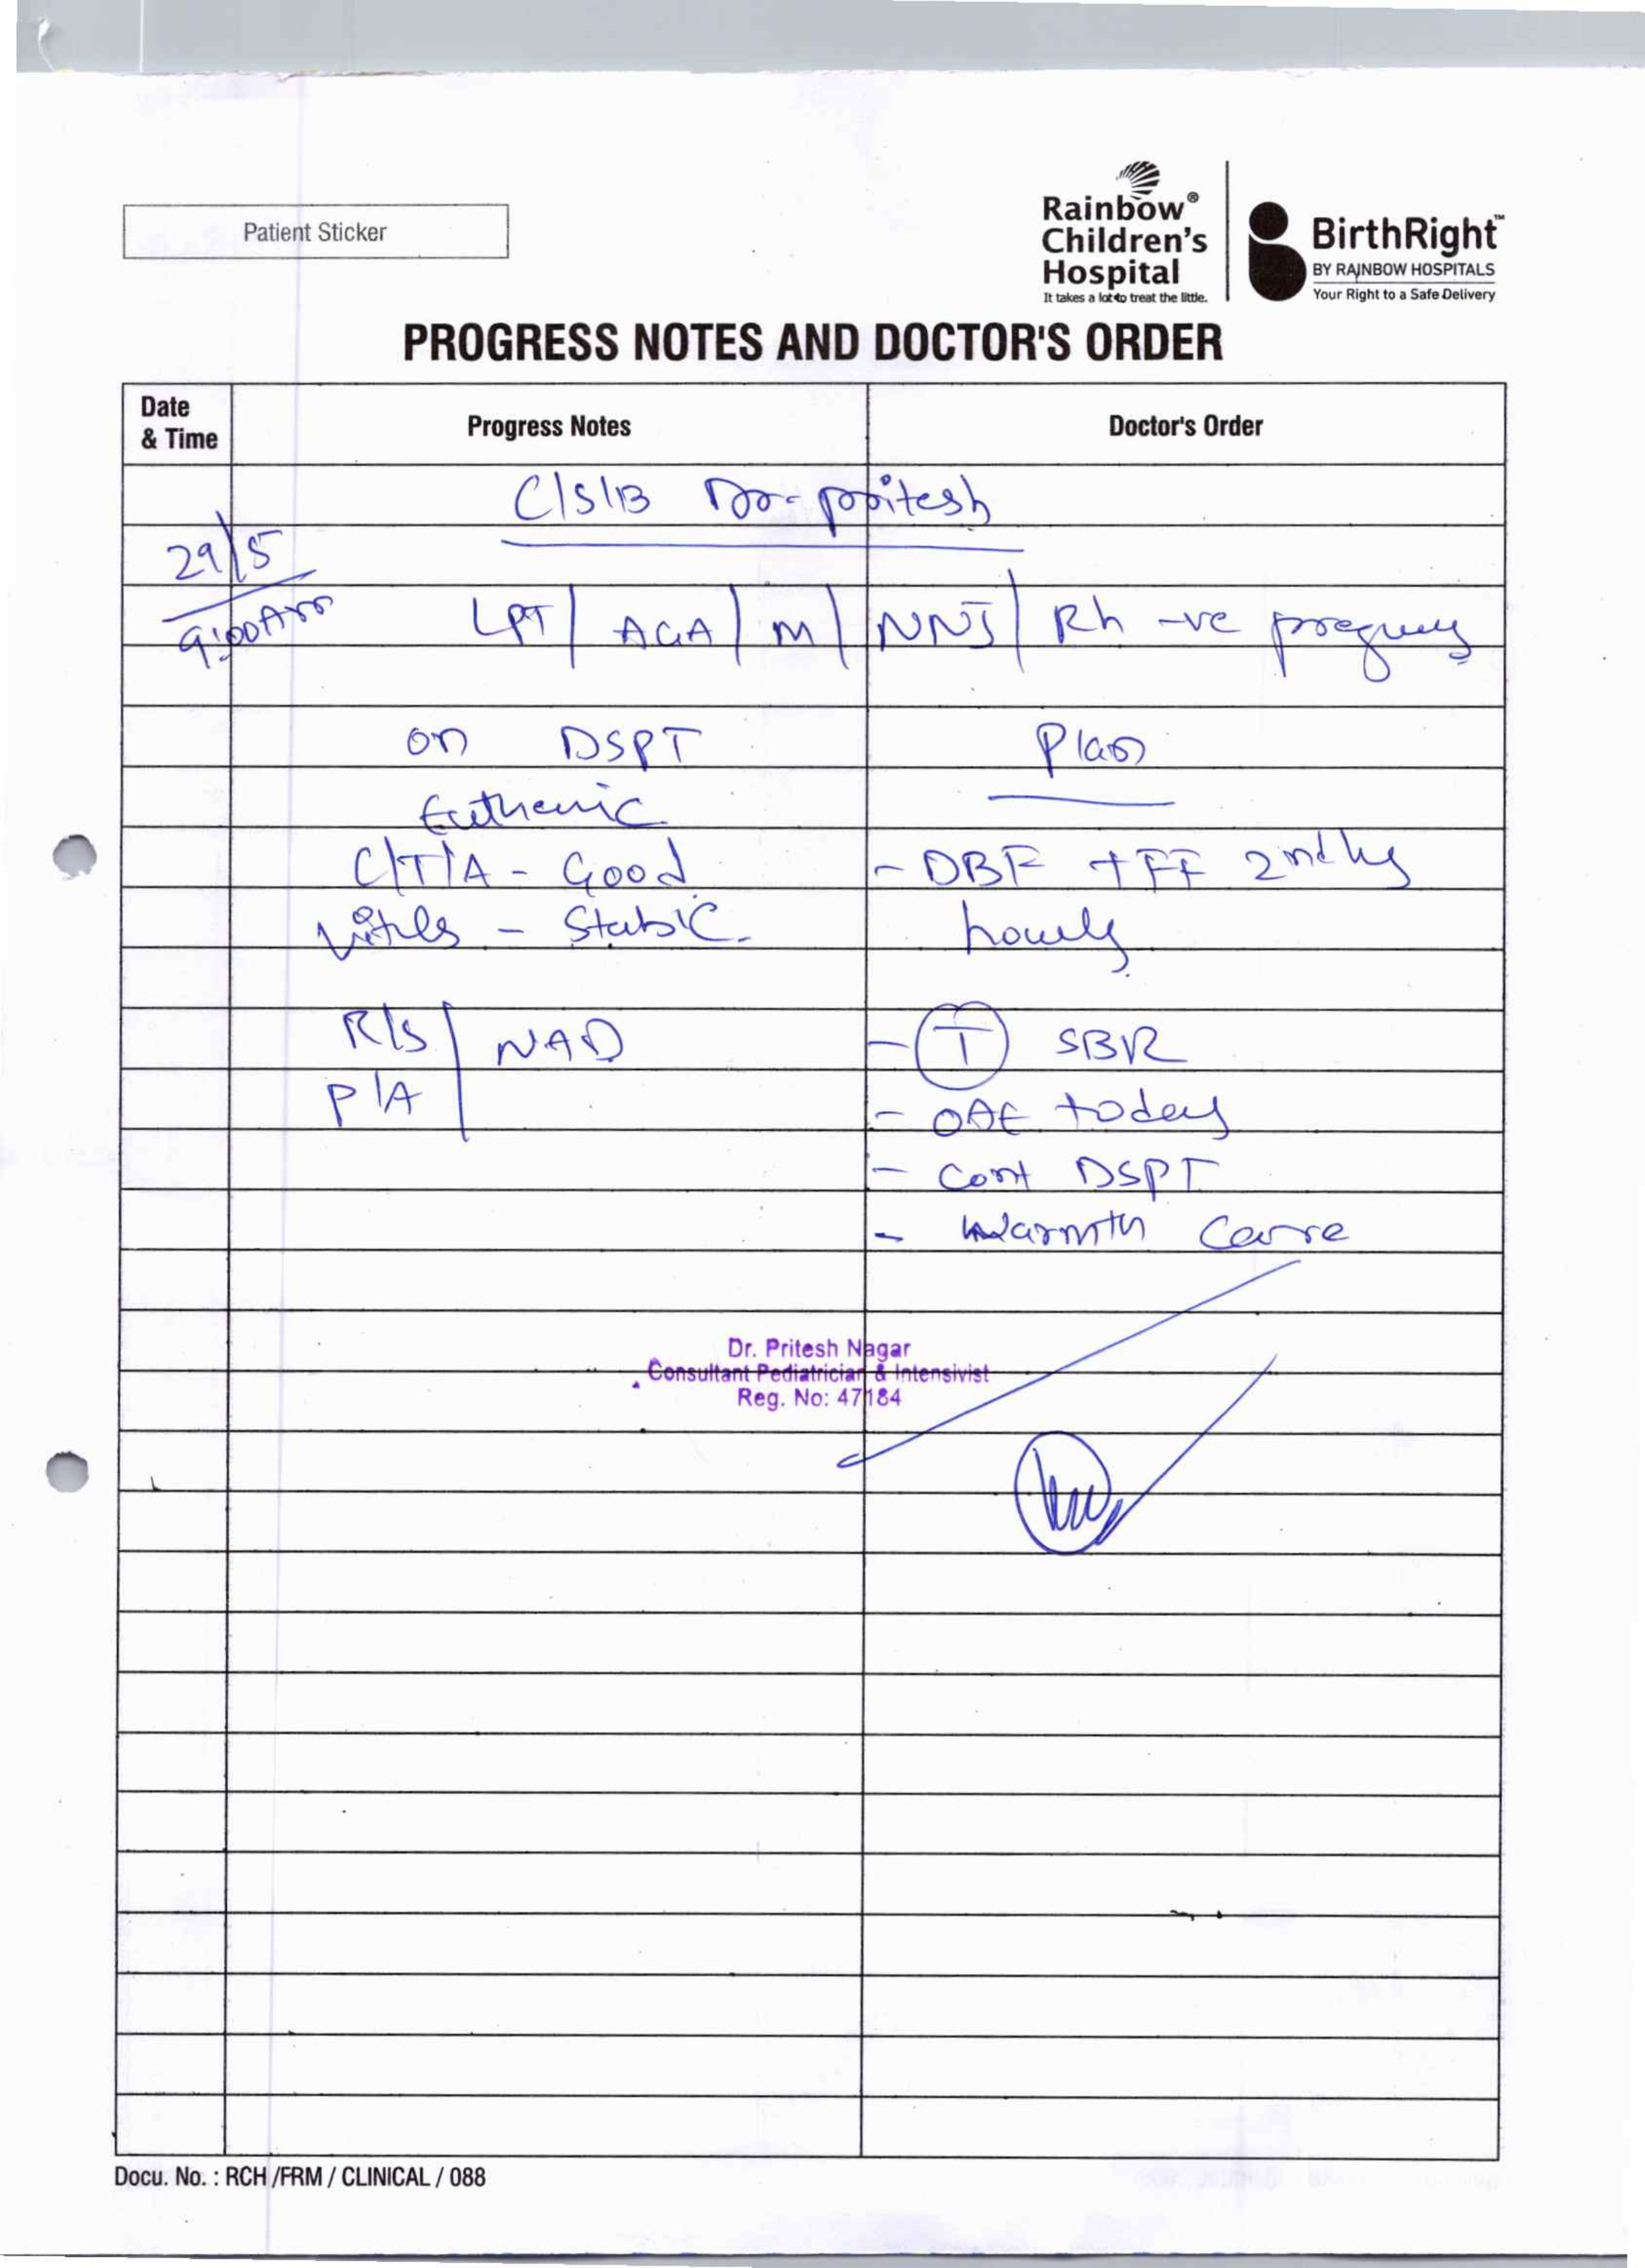 Patient Sticker
Rainbow®
Children's
Hospital
It takes a lot to treat the little.
BirthRight™
BY RAINBOW HOSPITALS
Your Right to a Safe Delivery
PROGRESS NOTES AND DOCTOR'S ORDER
Date
& Time
Progress Notes
Doctor's Order
C/S/B Dr-pritesh
29/5
9:00Am
LPT / AGA / M / NNJ / Rh -ve pregnancy
on DSPT
Plan
Euthermic
C/T/A - Good
- DBF + FF 2nd hrly
Vitals - Stable.
hourly
R/S
NAD
- T SBR
P/A
- OAE today
- Cont DSPT
- Warmth Care
Dr. Pritesh Nagar
Consultant Pediatrician & Intensivist
Reg. No: 47184
Docu. No. : RCH /FRM / CLINICAL / 088